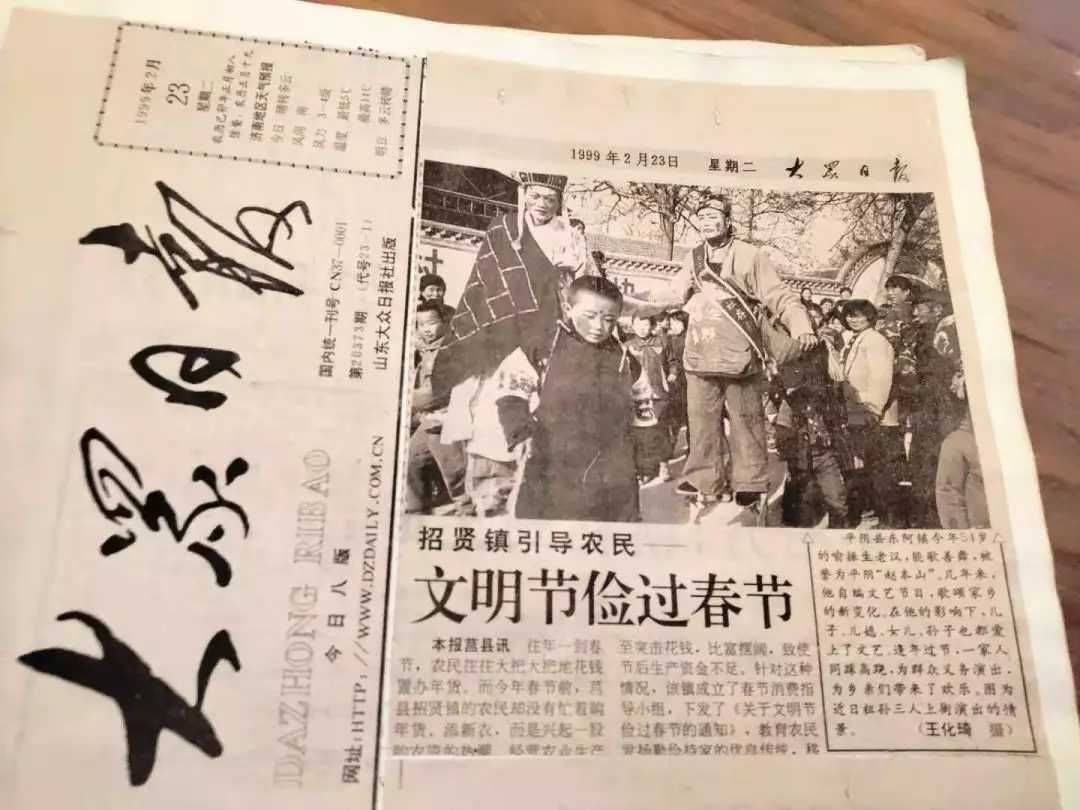 1999年2月
23
星期二
农历己卯年正月初八
雨水:农历正月十九
济南地区天气预报
今日 晴转多云
风向 南
风力 3—4级
温度 最低5℃
最高14℃
明日 多云转晴
大众日报
国内统一刊号 CN37-0001
第20373期 (代号23-1)
山东大众日报社出版
DAZHONG RIBAO
今日八版
网址:HTTP://WWW.DZDAILY.COM.CN
1999年2月23日 星期二 大众日报
招贤镇引导农民
文明节俭过春节
本报莒县讯 往年一到春
节,农民往往大把大把地花钱
置办年货。而今年春节前,莒
县招贤镇的农民却没有忙着购
年货、添新衣,而是兴起一股
至突击花钱,比富摆阔,致使
节后生产资金不足。针对这种
情况,该镇成立了春节消费指
导小组,下发了《关于文明节
俭过春节的通知》,教育农民
发扬勤俭持家的优良传统,移
平阴县东阿镇今年54岁
的俞振生老汉,能歌善舞,被
誉为平阴“赵本山”。几年来,
他自编文艺节目,歌颂家乡
的新变化。在他的影响下,儿
子、儿媳、女儿、孙子也都爱
上了文艺。逢年过节,一家人
同踩高跷,为群众义务演出,
为乡亲们带来了欢乐。图为
近日祖孙三人上街演出的情
景。 (王化琦 摄)